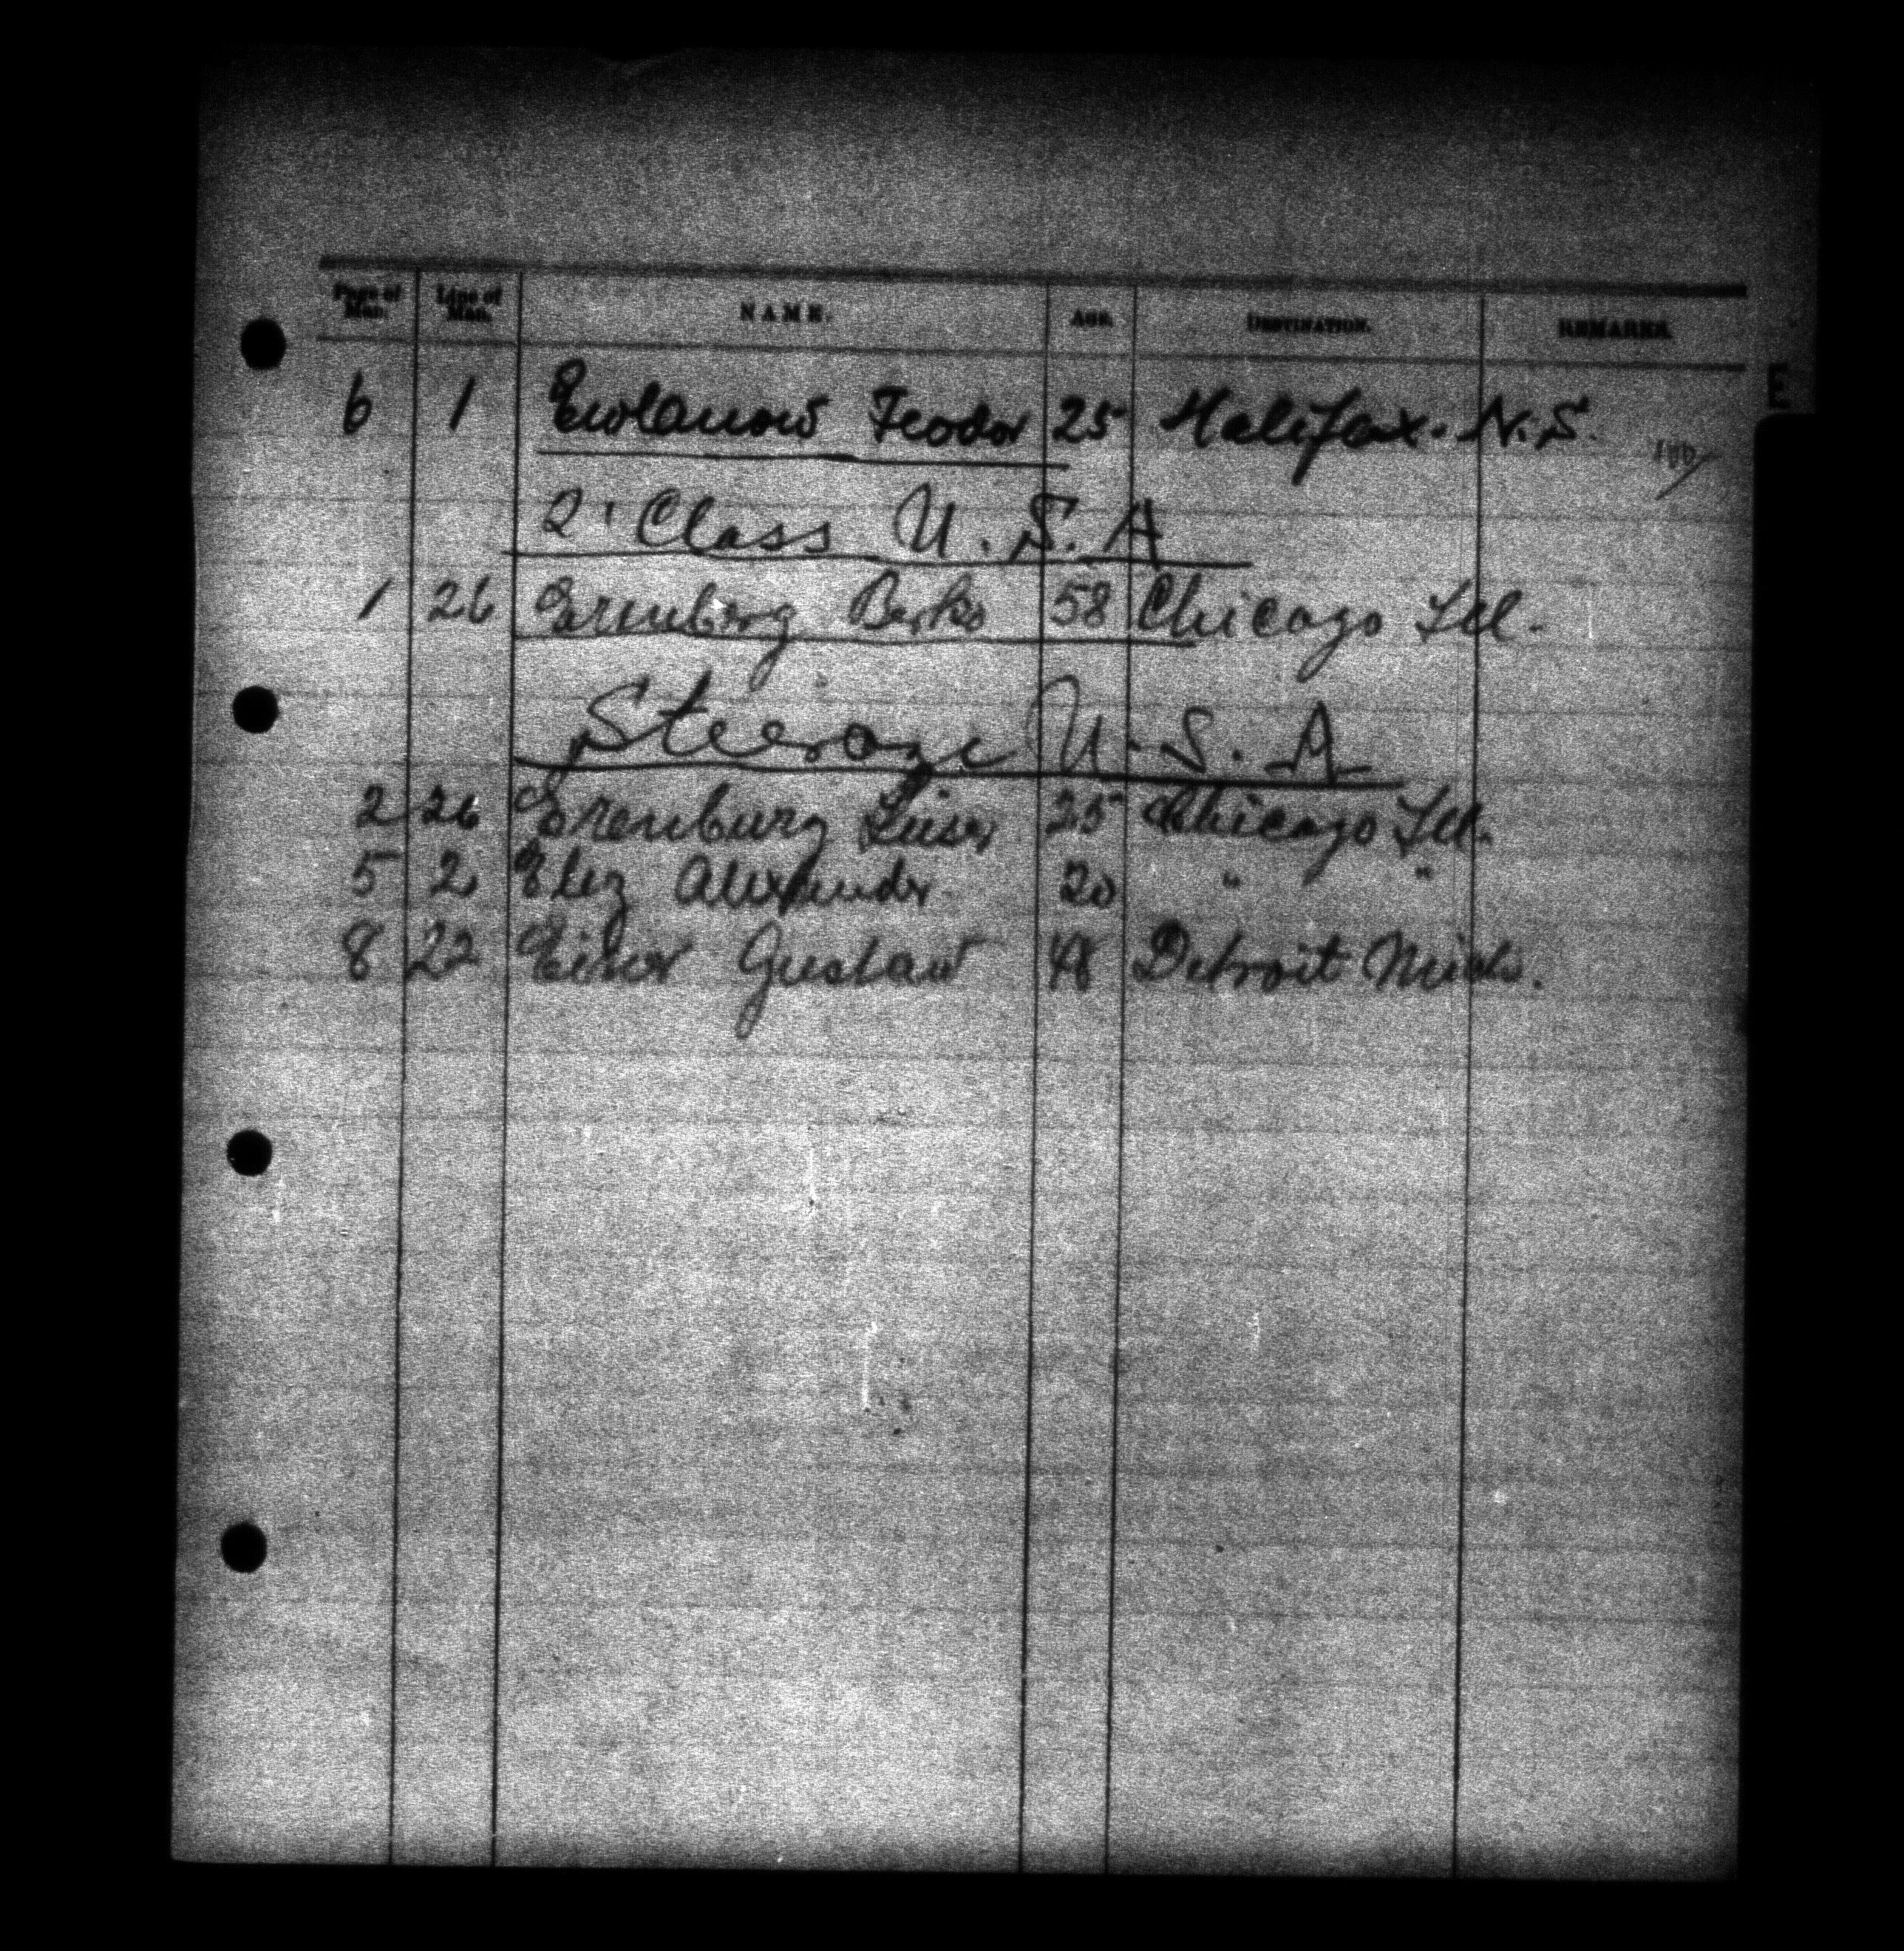 Page of Man. Line of Man. NAME. AGE. DESTINATION. REMARKS.
E
6 1 Ewlanow Feodor 25 Halifax. N.S.
2' Class U.S.A
1 26 Erenberg Berko 58 Chicago Ill.
Steerage U.S.A
2 26 Erenburg Leiser 25 Chicago Ill.
5 2 Elez Alexander 20 " "
8 22 Gustaw 48 Detroit Mich.